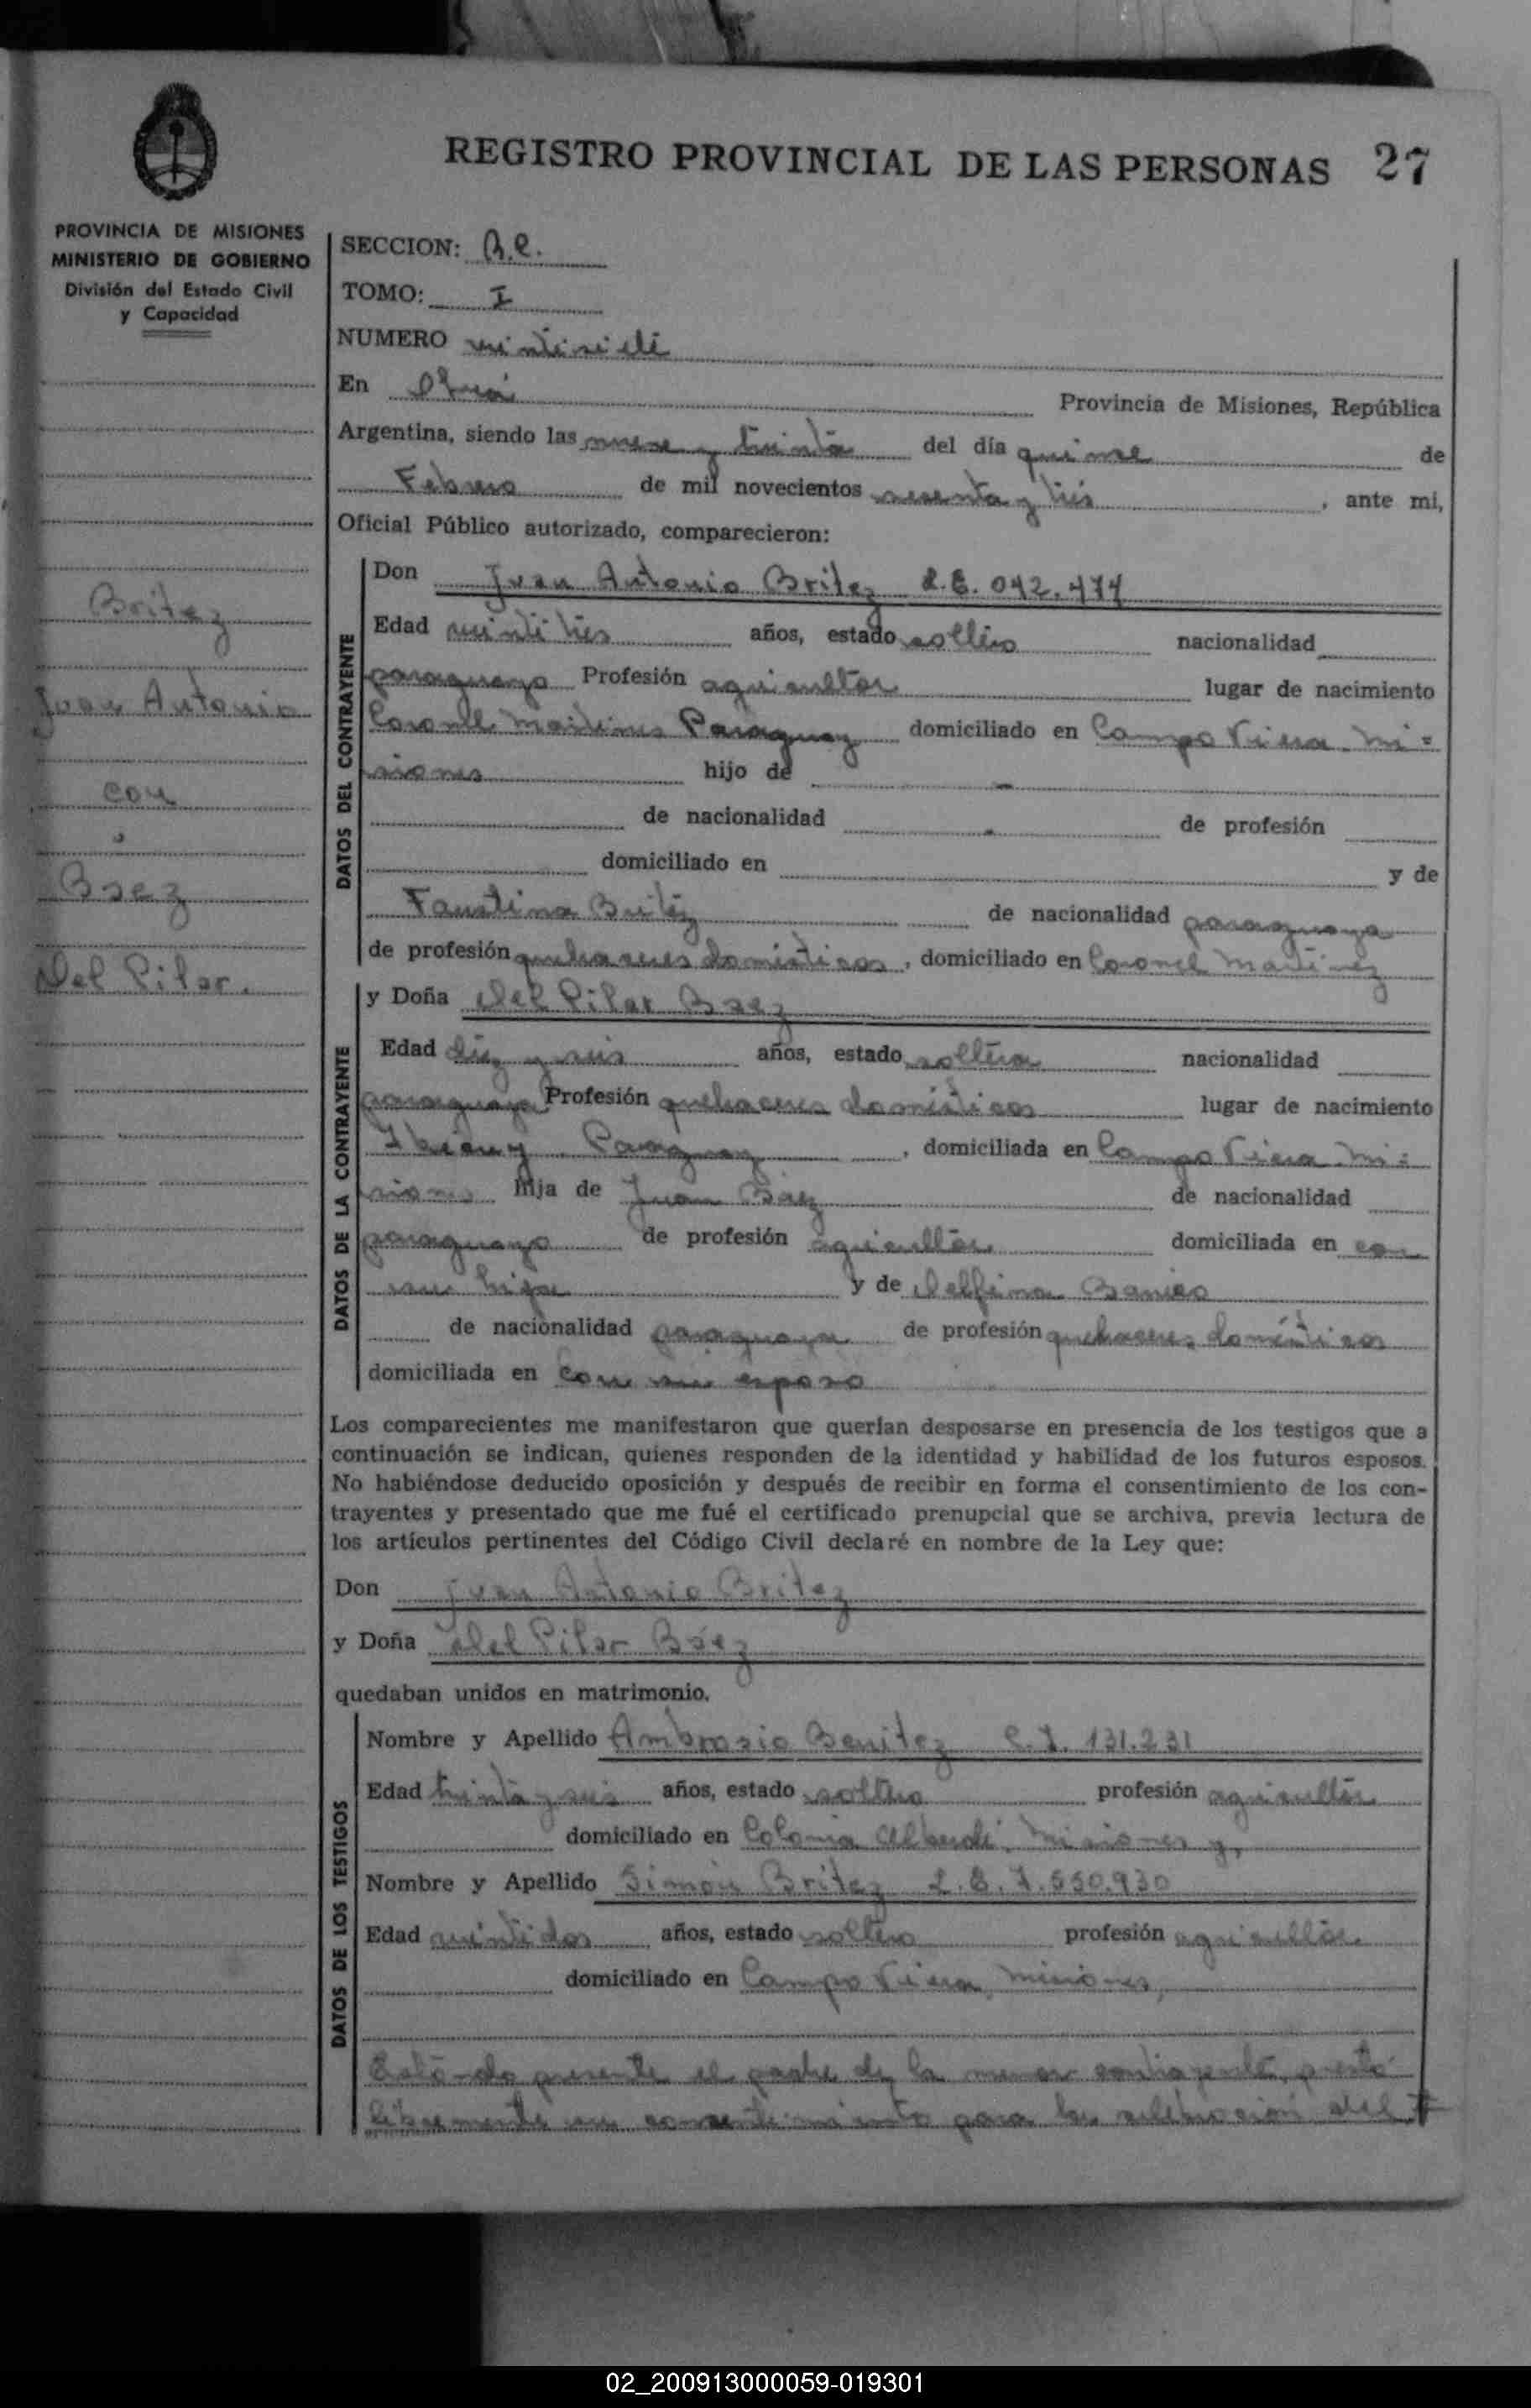 REGISTRO PROVINCIAL DE LAS PERSONAS 27
PROVINCIA DE MISIONES
MINISTERIO DE GOBIERNO
División del Estado Civil
y Capacidad
Britez
Juan Antonio
con
Baez
Del Pilar.
SECCION:
TOMO: I
NUMERO veintisiete
En Oberá Provincia de Misiones, República
Argentina, siendo las nueve y treinta del día quince de
Febrero de mil novecientos sesenta y tres, ante mi,
Oficial Público autorizado, comparecieron:
DATOS DEL CONTRAYENTE
Don Juan Antonio Britez
Edad veintitres años, estado soltero nacionalidad
paraguayo Profesión agricultor lugar de nacimiento
Coronel Martinez Paraguay domiciliado en Campo Viera. Mi=
siones hijo de -
de nacionalidad - de profesión
domiciliado en y de
Faustina Britez de nacionalidad paraguaya
de profesión quehaceres domésticos, domiciliado en Coronel Martinez
DATOS DE LA CONTRAYENTE
y Doña Del Pilar Baez
Edad diez y seis años, estado soltera nacionalidad
paraguaya Profesión quehaceres domésticos lugar de nacimiento
Paraguay, domiciliada en Campo Viera. Mi=
siones hija de Juan Baez de nacionalidad
paraguayo de profesión agricultor domiciliada en con
su hija y de Delfina
de nacionalidad paraguaya de profesión quehaceres domésticos
domiciliada en con su esposo
Los comparecientes me manifestaron que querían desposarse en presencia de los testigos que a
continuación se indican, quienes responden de la identidad y habilidad de los futuros esposos.
No habiéndose deducido oposición y después de recibir en forma el consentimiento de los con-
trayentes y presentado que me fué el certificado prenupcial que se archiva, previa lectura de
los artículos pertinentes del Código Civil declaré en nombre de la Ley que:
Don Juan Antonio Britez
y Doña Del Pilar Báez
quedaban unidos en matrimonio.
DATOS DE LOS TESTIGOS
Nombre y Apellido Ambrosio Benitez C.I. 131.231
Edad treinta y seis años, estado soltero profesión agricultor
domiciliado en Colonia Alberdi, Misiones y,
Nombre y Apellido Simón Britez L.E. 7.550.930
Edad veintidos años, estado soltero profesión agricultor
domiciliado en Campo Viera, Misiones,
Estando presente el padre de la menor contrayente, prestó
libremente su consentimiento para la celebración del #
02_200913000059-019301